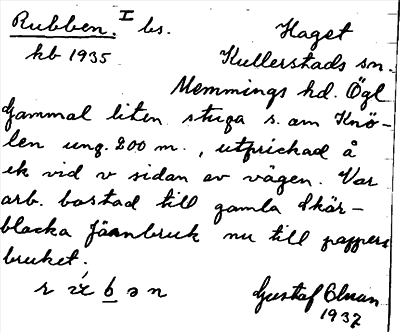 Rubben. I bs. Haget
kb 1935 Kullerstads sn.
Memmings hd. Ögl
Gammal liten stuga s. om Knö-
len ung. 200 m., utprickad å
ek vid v sidan av vägen. Var
arb. bostad till gamla Skär-
blacka järnbruk nu till pappers
bruket.
Gustaf
1937